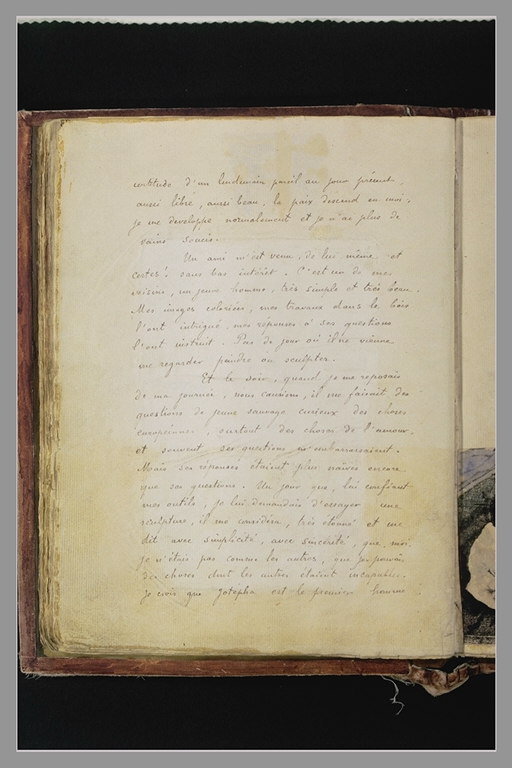 certitude d'un lendemain pareil au jour présent,
aussi libre, aussi beau, la paix descend en moi ;
je me développe normalement et je n'ai plus de
vains soucis.
Un ami m'est venu, de lui même et
certes ! sans bas intérêt. C'est un de mes
voisins, un jeune homme, très simple et très beau.
Mes images coloriées, mes travaux dans le bois
l'ont intrigué, mes réponses à ses questions
l'ont instruit. Pas de jour où il ne vienne
me regarder peindre ou sculpter.
Et le soir, quand je me reposais
de ma journée, nous causions, il me faisait des
questions de jeune sauvage curieux des choses
européennes, surtout des choses de l'amour,
et souvent ses questions m'embarrassaient.
Mais ses réponses étaient plus naïves encore
que ses questions. Un jour que, lui confiant
mes outils, je lui demandais d'essayer une
sculpture, il me considéra, très étonné et me
dit avec simplicité, avec sincérité, que moi,
je n'étais pas comme les autres, que je pouvais
des choses dont les autres étaient incapables.
Je crois que Jotépha est le premier homme